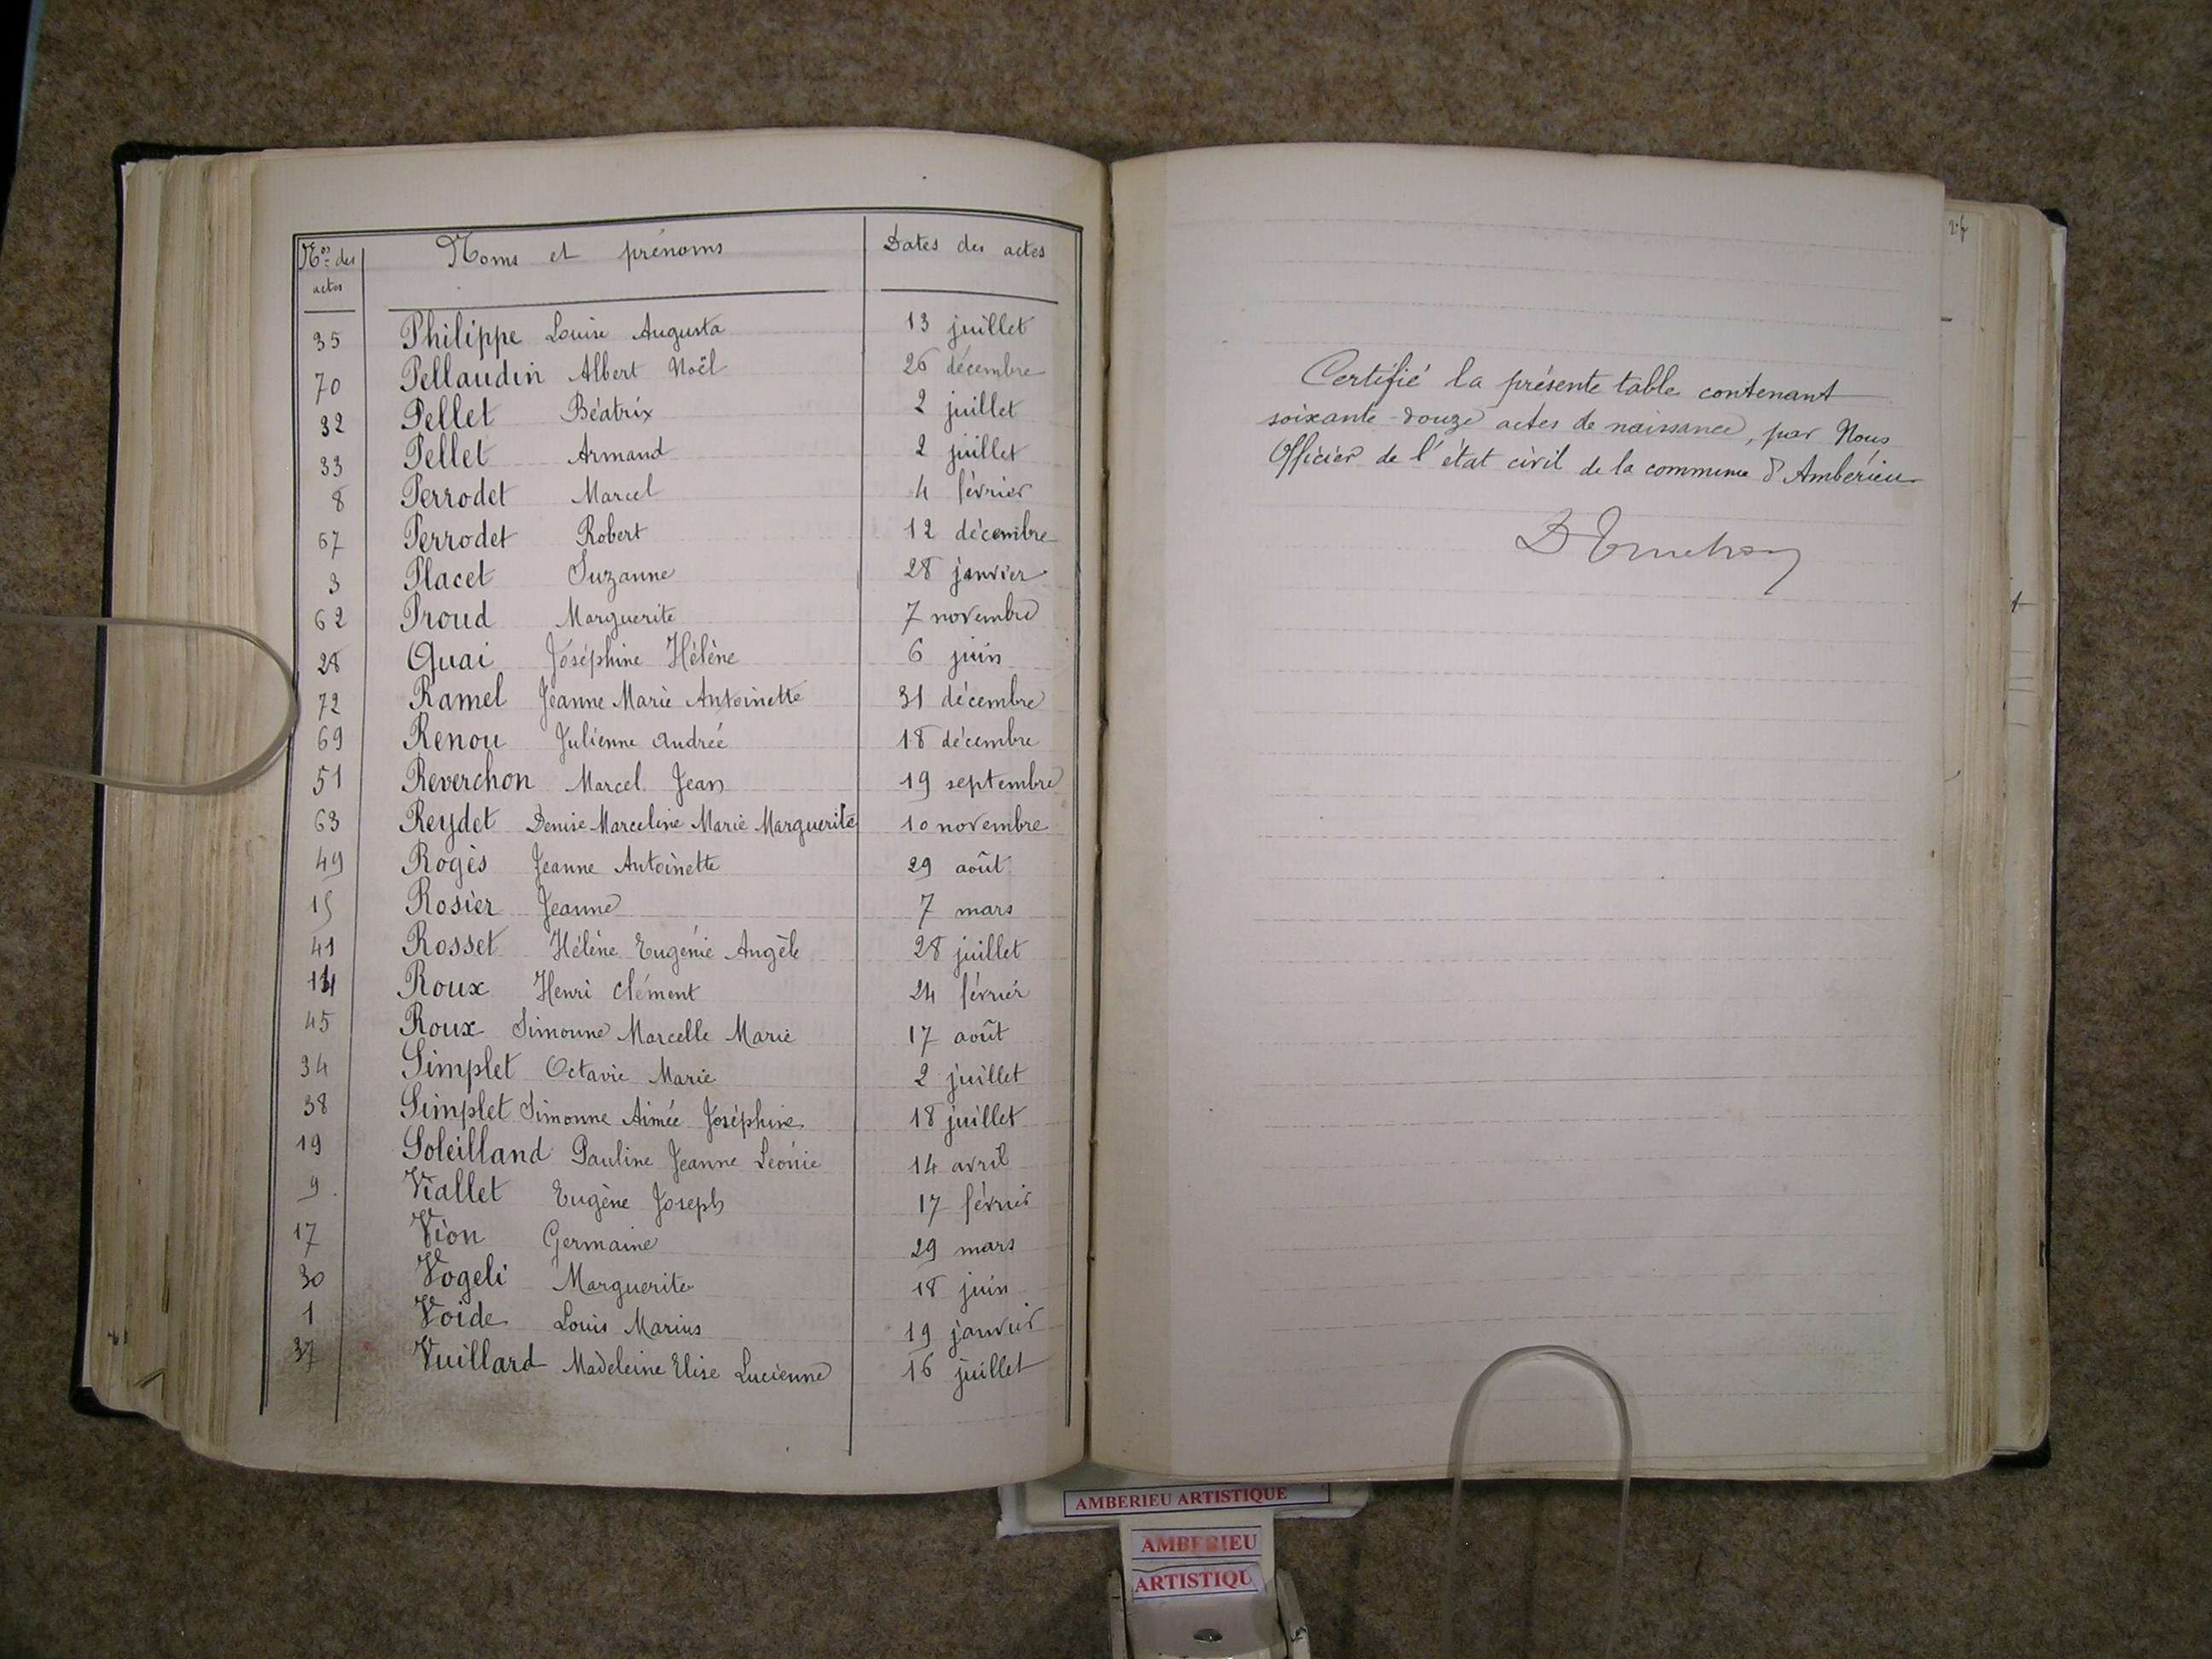 Nos des actes Noms et prénoms Dates des actes
35 Philippe Louise Augusta 13 juillet
70 Pellaudin Albert Noël 26 décembre
32 Pellet Béatrix 2 juillet
33 Pellet Armand 2 juillet
8 Perrodet Marcel 4 février
67 Perrodet Robert 12 décembre
3 Placet Suzanne 28 janvier
62 Proud Marguerite 7 novembre
28 Quai Joséphine Hélène 6 juin
72 Ramel Jeanne Marie Antoinette 31 décembre
69 Renou Julienne Andrée 18 décembre
51 Reverchon Marcel Jean 19 septembre
63 Reydet Denise Marceline Marie Marguerite 10 novembre
49 Rogès Jeanne Antoinette 29 août
15 Rosier Jeanne 7 mars
41 Rosset Hélène Eugénie Angèle 28 juillet
Roux Henri Clément 24 février
45 Roux Simonne Marcelle Marie 17 août
34 Simplet Octavie Marie 2 juillet
38 Simplet Simonne Aimée Joséphine 18 juillet
19 Soleilland Pauline Jeanne Léonie 14 avril
9 Viallet Eugène Joseph 17 février
17 Vion Germaine 29 mars
30 Vogeli Marguerite 18 juin
1 Voide Louis Marius 19 janvier
37 Vuillard Madeleine Elise Lucienne 16 juillet
Certifié la présente table contenant
soixante-douze actes de naissance, par Nous
Officier de l'état civil de la commune d'Ambérieu
AMBERIEU ARTISTIQUE
AMBERIEU
ARTISTIQU